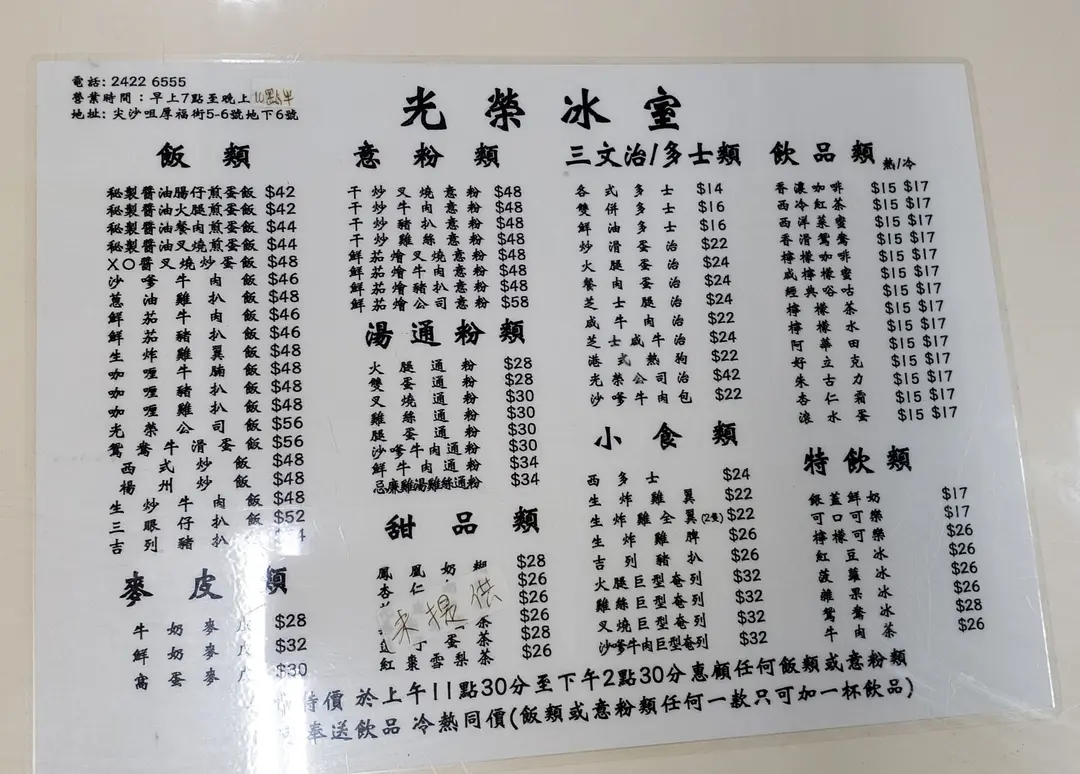 電話: 2422 6555
營業時間：早上7點至晚上10點半
地址: 尖沙咀厚福街5-6號地下6號
光榮冰室
飯類
秘製醬油腸仔煎蛋飯 $42
秘製醬油火腿煎蛋飯 $42
秘製醬油餐肉煎蛋飯 $44
秘製醬油叉燒煎蛋飯 $44
XO醬叉燒炒蛋飯 $48
沙嗲牛肉飯 $46
蔥油雞扒飯 $48
鮮茄牛肉飯 $46
鮮茄豬扒飯 $46
生炸雞翼飯 $48
咖喱牛腩飯 $48
咖喱豬扒飯 $48
咖喱雞扒飯 $48
光榮公司飯 $56
鴛鴦牛滑蛋飯 $56
西式炒飯 $48
楊州炒飯 $48
生炒牛肉飯 $48
三眼仔扒飯 $52
吉列豬扒
麥皮類
牛奶麥皮 $28
鮮奶麥皮 $32
窩蛋麥皮 $30
意粉類
干炒叉燒意粉 $48
干炒牛肉意粉 $48
干炒豬扒意粉 $48
干炒雞絲意粉 $48
鮮茄燴叉燒意粉 $48
鮮茄燴牛肉意粉 $48
鮮茄燴豬扒意粉 $48
鮮茄燴公司意粉 $58
湯通粉類
火腿通粉 $28
雙蛋通粉 $28
叉燒通粉 $30
雞絲通粉 $30
腿蛋通粉 $30
沙嗲牛肉通粉 $30
鮮牛肉通粉 $34
忌廉雞湯雞絲通粉 $34
甜品類
鳳凰奶 $28
杏仁 $26
$26
茶 $26
蛋茶 $28
紅棗雪梨茶 $26
未提供
三文治/多士類
各式多士 $14
雙併多士 $16
鮮油多士 $16
炒滑蛋治 $22
火腿蛋治 $24
餐肉蛋治 $24
芝士腿治 $24
咸牛肉治 $22
芝士咸牛治 $24
港式熱狗 $22
光榮公司治 $42
沙嗲牛肉包 $22
小食類
西多士 $24
生炸雞翼 $22
生炸雞全翼(2隻) $22
生炸雞髀 $26
吉列豬扒 $26
火腿巨型奄列 $32
雞絲巨型奄列 $32
叉燒巨型奄列 $32
沙嗲牛肉巨型奄列 $32
飲品類 熱/冷
香濃咖啡 $15 $17
西冷紅茶 $15 $17
西洋菜蜜 $15 $17
香滑鴛鴦 $15 $17
檸檬咖啡 $15 $17
咸檸檬蜜 $15 $17
經典唂咕 $15 $17
檸檬茶 $15 $17
檸檬水 $15 $17
阿華田 $15 $17
好立克 $15 $17
朱古力 $15 $17
杏仁霜 $15 $17
滾水蛋 $15 $17
特飲類
銀蓋鮮奶 $17
可口可樂 $17
檸檬可樂 $26
紅豆冰 $26
菠蘿冰 $26
雜果冰 $26
鴛鴦冰 $28
牛肉茶 $26
特價 於上午11點30分至下午2點30分惠顧任何飯類或意粉類
奉送飲品 冷熱同價(飯類或意粉類任何一款只可加一杯飲品)